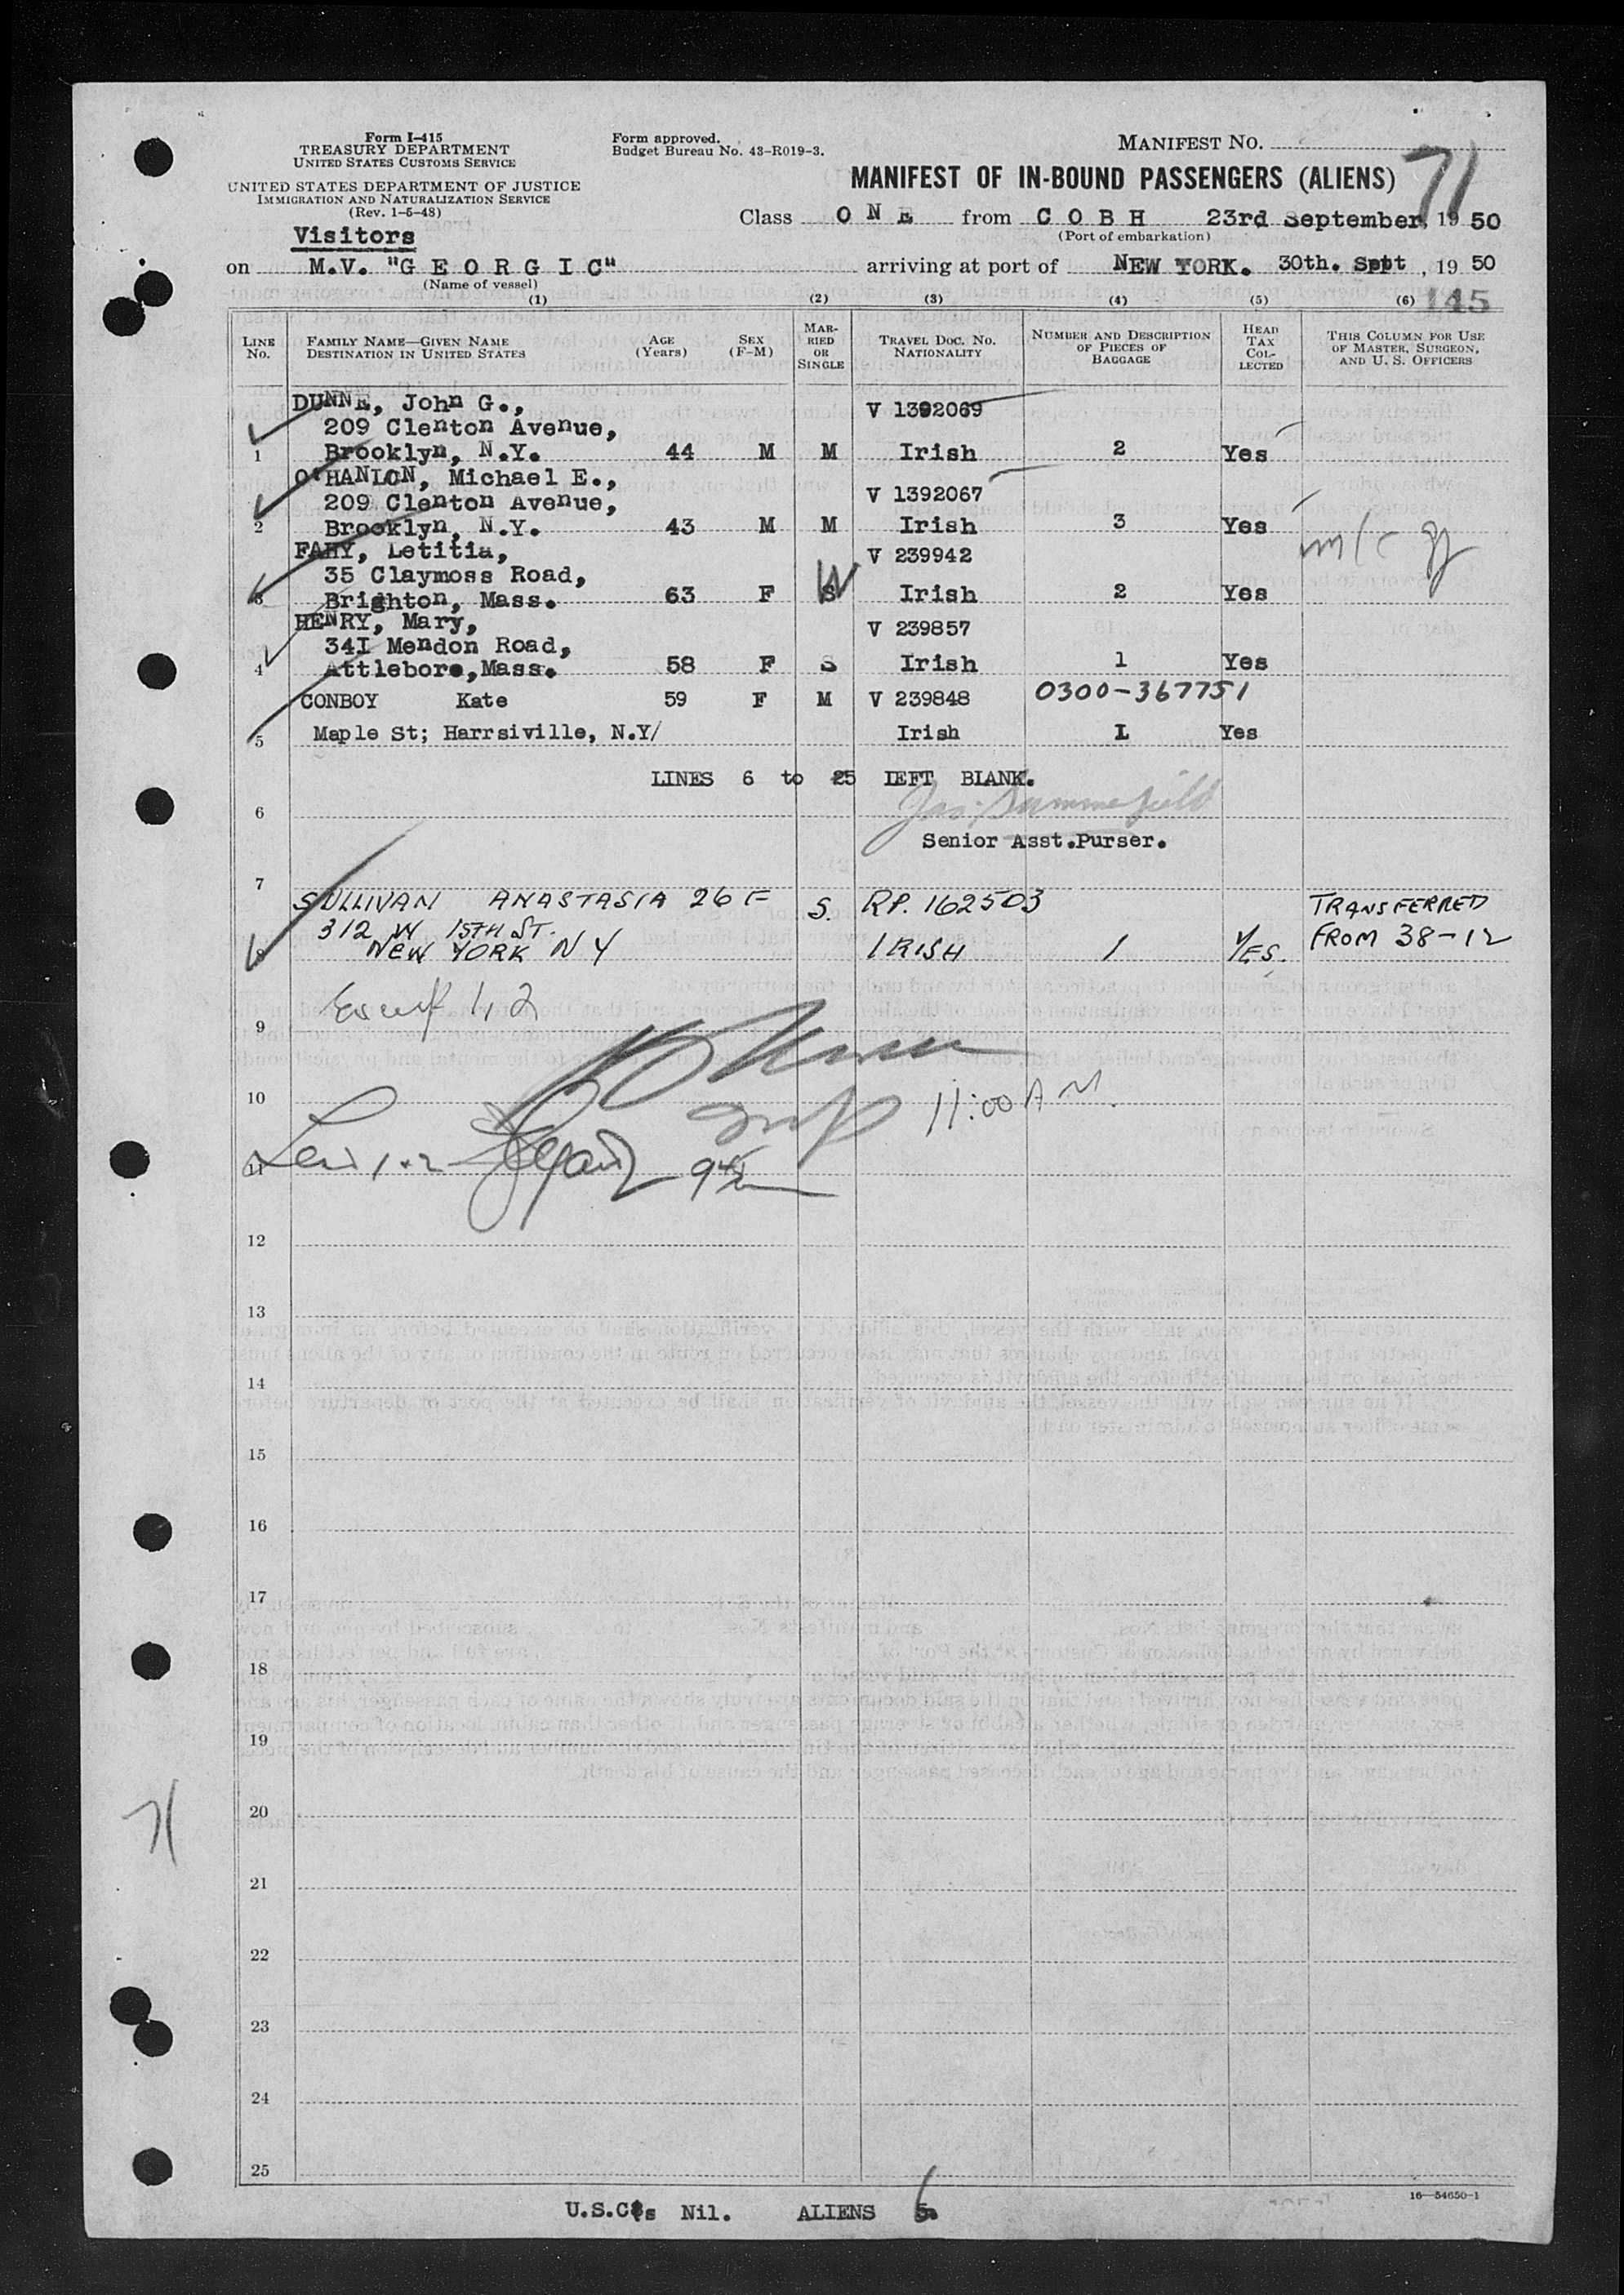 Form I-415
TREASURY DEPARTMENT
UNITED STATES CUSTOMS SERVICE
UNITED STATES DEPARTMENT OF JUSTICE
IMMIGRATION AND NATURALIZATION SERVICE
(Rev. 1-5-48)
Form approved.
Budget Bureau No. 43-R019-3.
MANIFEST NO.
71
MANIFEST OF IN-BOUND PASSENGERS (ALIENS)
Class ONE from COBH 23rd September, 1950
(Port of embarkation)
Visitors
on M.V. "GEORGIC" arriving at port of NEW YORK. 30th. Sept, 1950
(Name of vessel)
(1) (2) (3) (4) (5) (6) 145
LINE No. FAMILY NAME—GIVEN NAME DESTINATION IN UNITED STATES AGE (Years) SEX (F-M) MARRIED OR SINGLE TRAVEL DOC. NO. NATIONALITY NUMBER AND DESCRIPTION OF PIECES OF BAGGAGE HEAD TAX COLLECTED THIS COLUMN FOR USE OF MASTER, SURGEON, AND U. S. OFFICERS
DUNNE, John G., V 1392069
209 Clenton Avenue,
1 Brooklyn, N.Y. 44 M M Irish 2 Yes
O'HANLON, Michael E., V 1392067
209 Clenton Avenue,
2 Brooklyn, N.Y. 43 M M Irish 3 Yes
FAHY, Letitia, V 239942
35 Claymoss Road,
3 Brighton, Mass. 63 F S W Irish 2 Yes
HENRY, Mary, V 239857
34I Mendon Road,
4 Attleboro, Mass. 58 F S Irish 1 Yes
CONBOY Kate 59 F M V 239848 0300-367751
5 Maple St; Harrsiville, N.Y/ Irish L Yes
LINES 6 to 25 LEFT BLANK.
6 Jas. Summerfield
Senior Asst.Purser.
7
SULLIVAN ANASTASIA 26 F S. RP. 162503 TRANSFERRED
312 W 15TH ST.
8 NEW YORK N Y IRISH 1 YES. FROM 38-12
9
10 11:00 A M.
11
12
13
14
15
16
17
18
19
20
71
21
22
23
24
25
16—54650-1
U.S.C's Nil. ALIENS 6